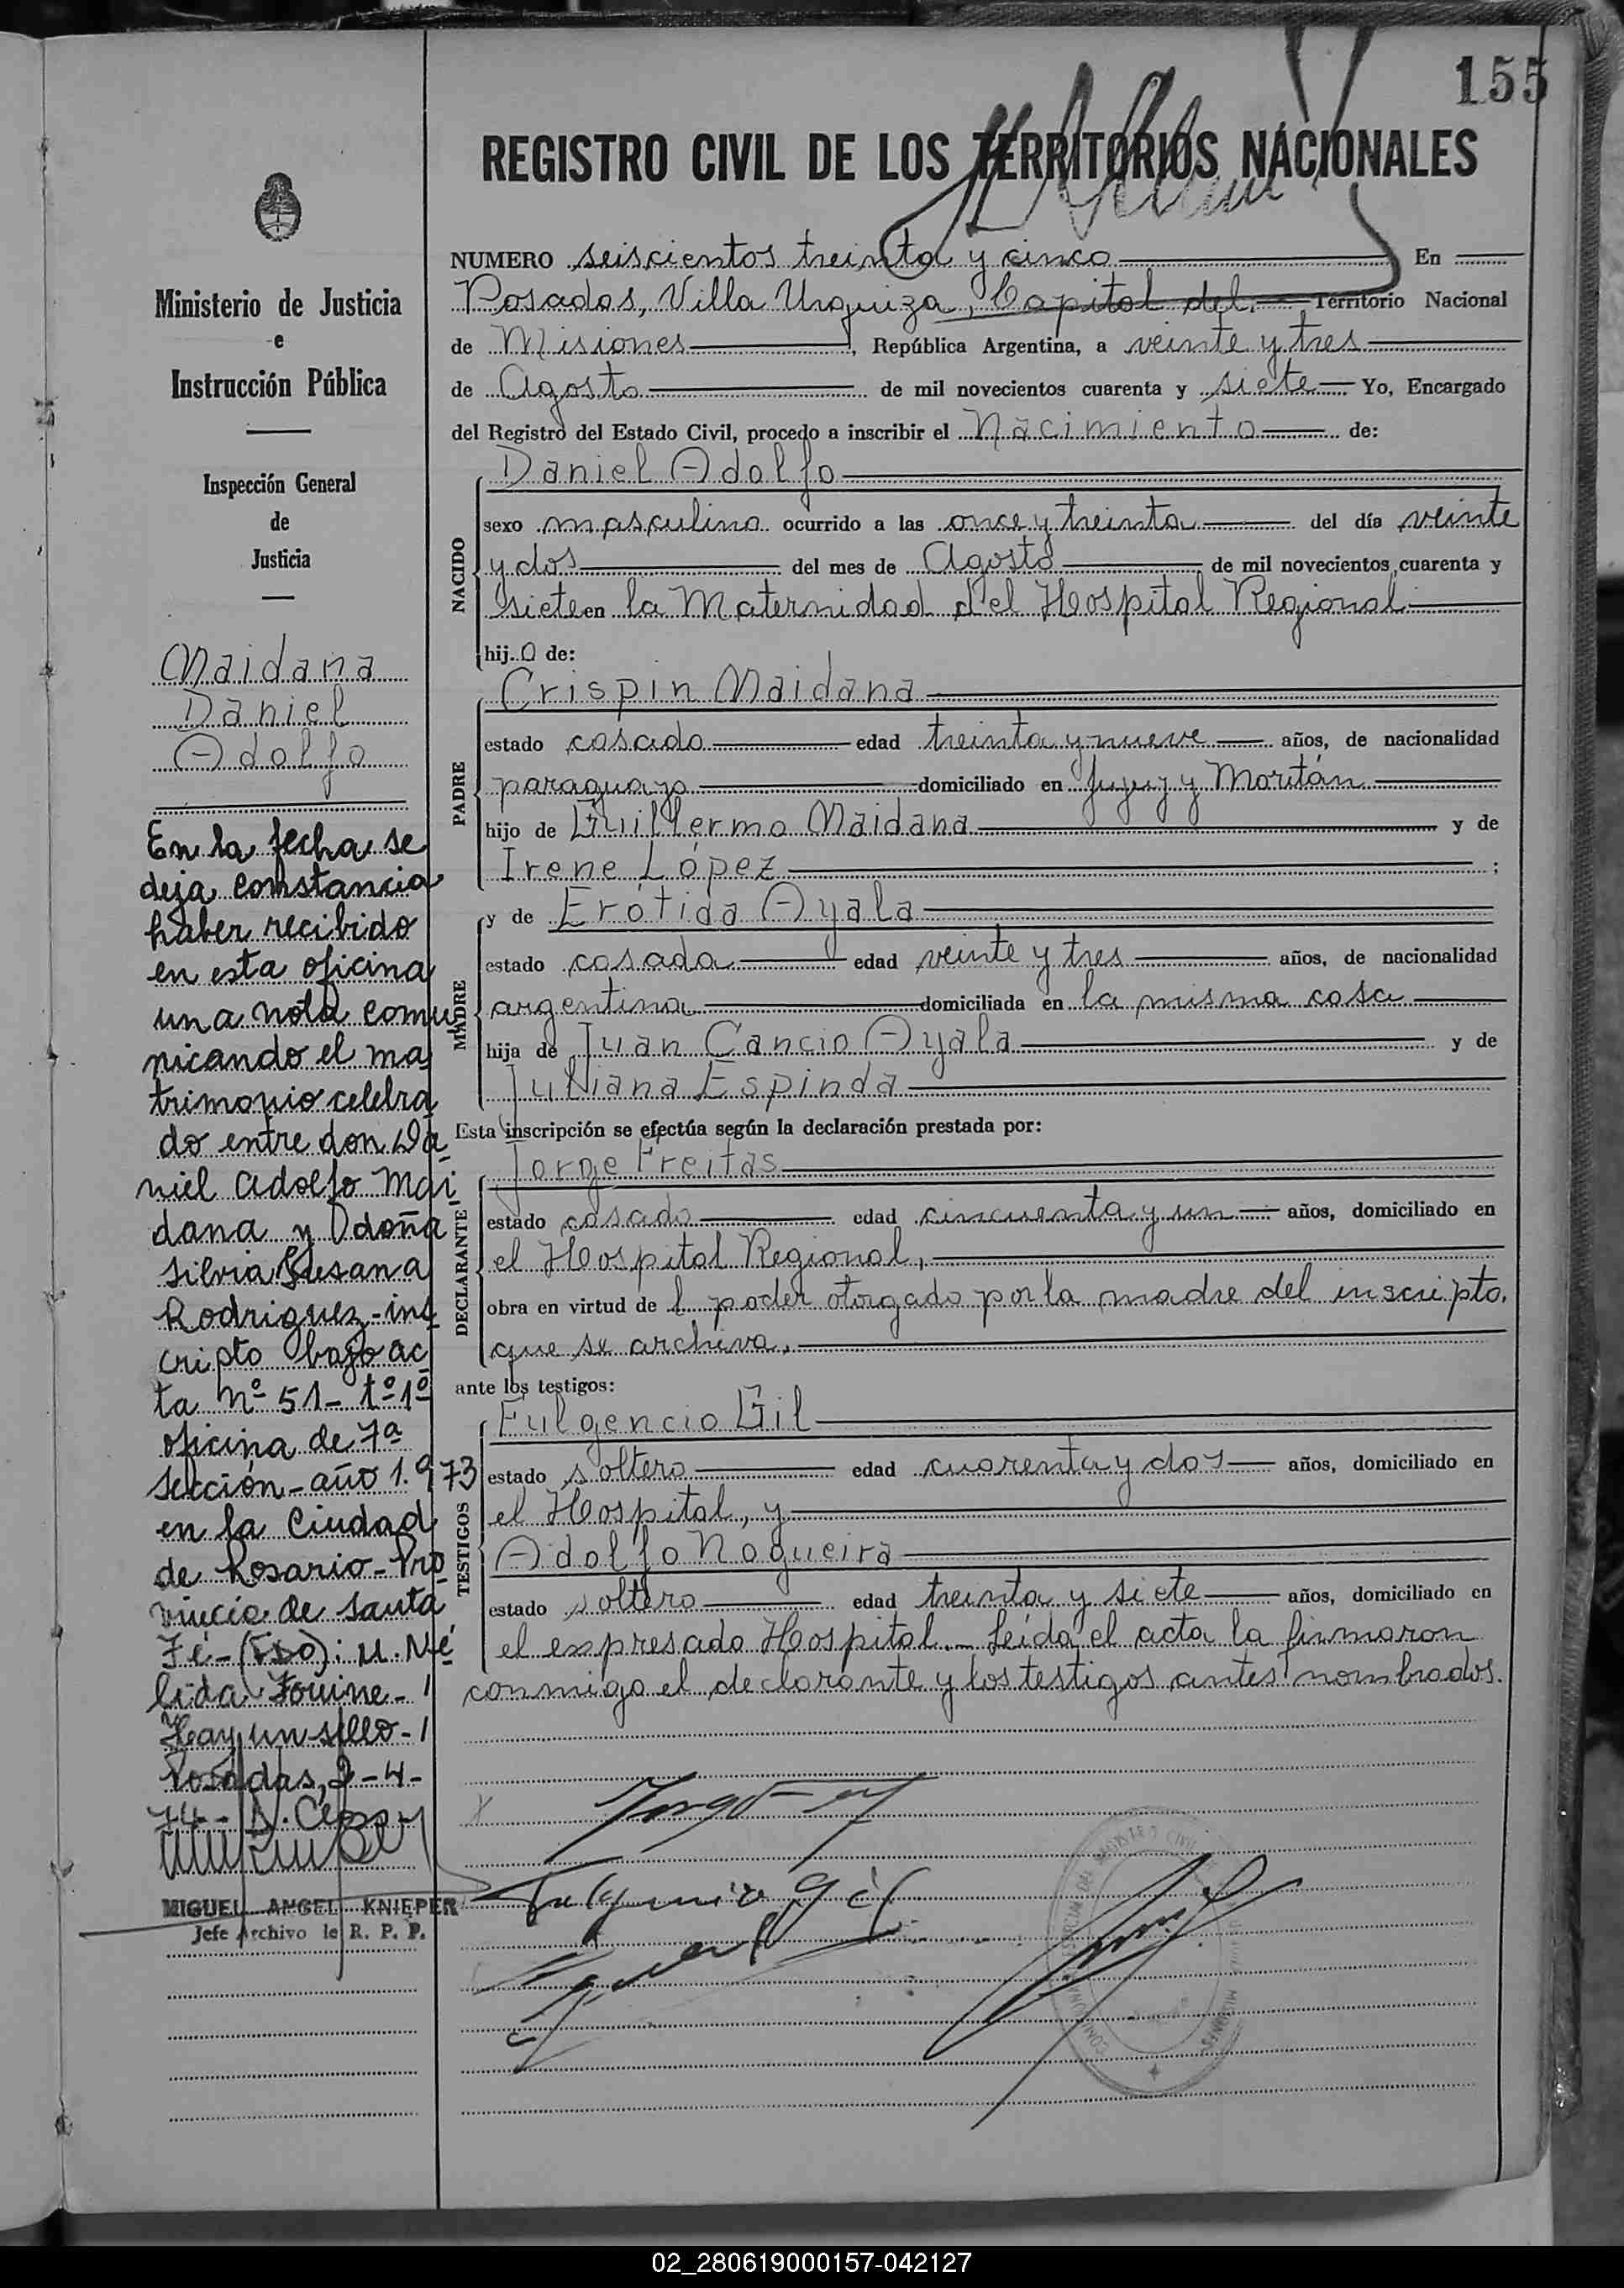 155
REGISTRO CIVIL DE LOS TERRITORIOS NACIONALES
Ministerio de Justicia
e
Instrucción Pública
Inspección General
de
Justicia
Maidana
Daniel
Adolfo
En la fecha se
deja constancia
haber recibido
en esta oficina
una nota comu
nicando el ma
trimonio celebra
do entre don Da
niel Adolfo Mai
dana y doña
Silvia Susana
Rodriguez - ins
cripto bajo ac
ta Nº 51 - tº 1º
oficina de 7ª
Sección - año 1.973
en la Ciudad
de Rosario - Pro
vincia de Santa
Fé - (FDO): M. Né
lida Fouine -
Hay un sello -
Posadas, 2 - 4 -
74 -
MIGUEL ANGEL KNIEPER
Jefe Archivo de R. P. P.
NUMERO seiscientos treinta y cinco En
Posadas, Villa Urquiza, Capital del Territorio Nacional
de Misiones, República Argentina, a veinte y tres
de Agosto de mil novecientos cuarenta y siete Yo, Encargado
del Registro del Estado Civil, procedo a inscribir el Nacimiento de:
NACIDO
Daniel Adolfo
sexo masculino ocurrido a las once y treinta del día veinte
y dos del mes de Agosto de mil novecientos cuarenta y
siete en la Maternidad del Hospital Regional
hijo de:
PADRE
Crispin Maidana
estado casado edad treinta y nueve años, de nacionalidad
paraguayo domiciliado en Jujuy y Moritán
hijo de Guillermo Maidana y de
Irene López ;
MADRE
y de Erótida Ayala
estado casada edad veinte y tres años, de nacionalidad
argentina domiciliada en la misma casa
hija de Juan Cancio Ayala y de
Juliana Espinda
Esta inscripción se efectúa según la declaración prestada por:
DECLARANTE
Jorge Freitas
estado casado edad cincuenta y un años, domiciliado en
el Hospital Regional,
obra en virtud del poder otorgado por la madre del inscripto,
que se archiva.
ante los testigos:
TESTIGOS
Fulgencio Gil
estado soltero edad cuarenta y dos años, domiciliado en
el Hospital, y
Adolfo Nogueira
estado soltero edad treinta y siete años, domiciliado en
el expresado Hospital. - Leída el acta la firmaron
conmigo el declarante y los testigos antes nombrados.
Fulgencio Gil
02_280619000157-042127